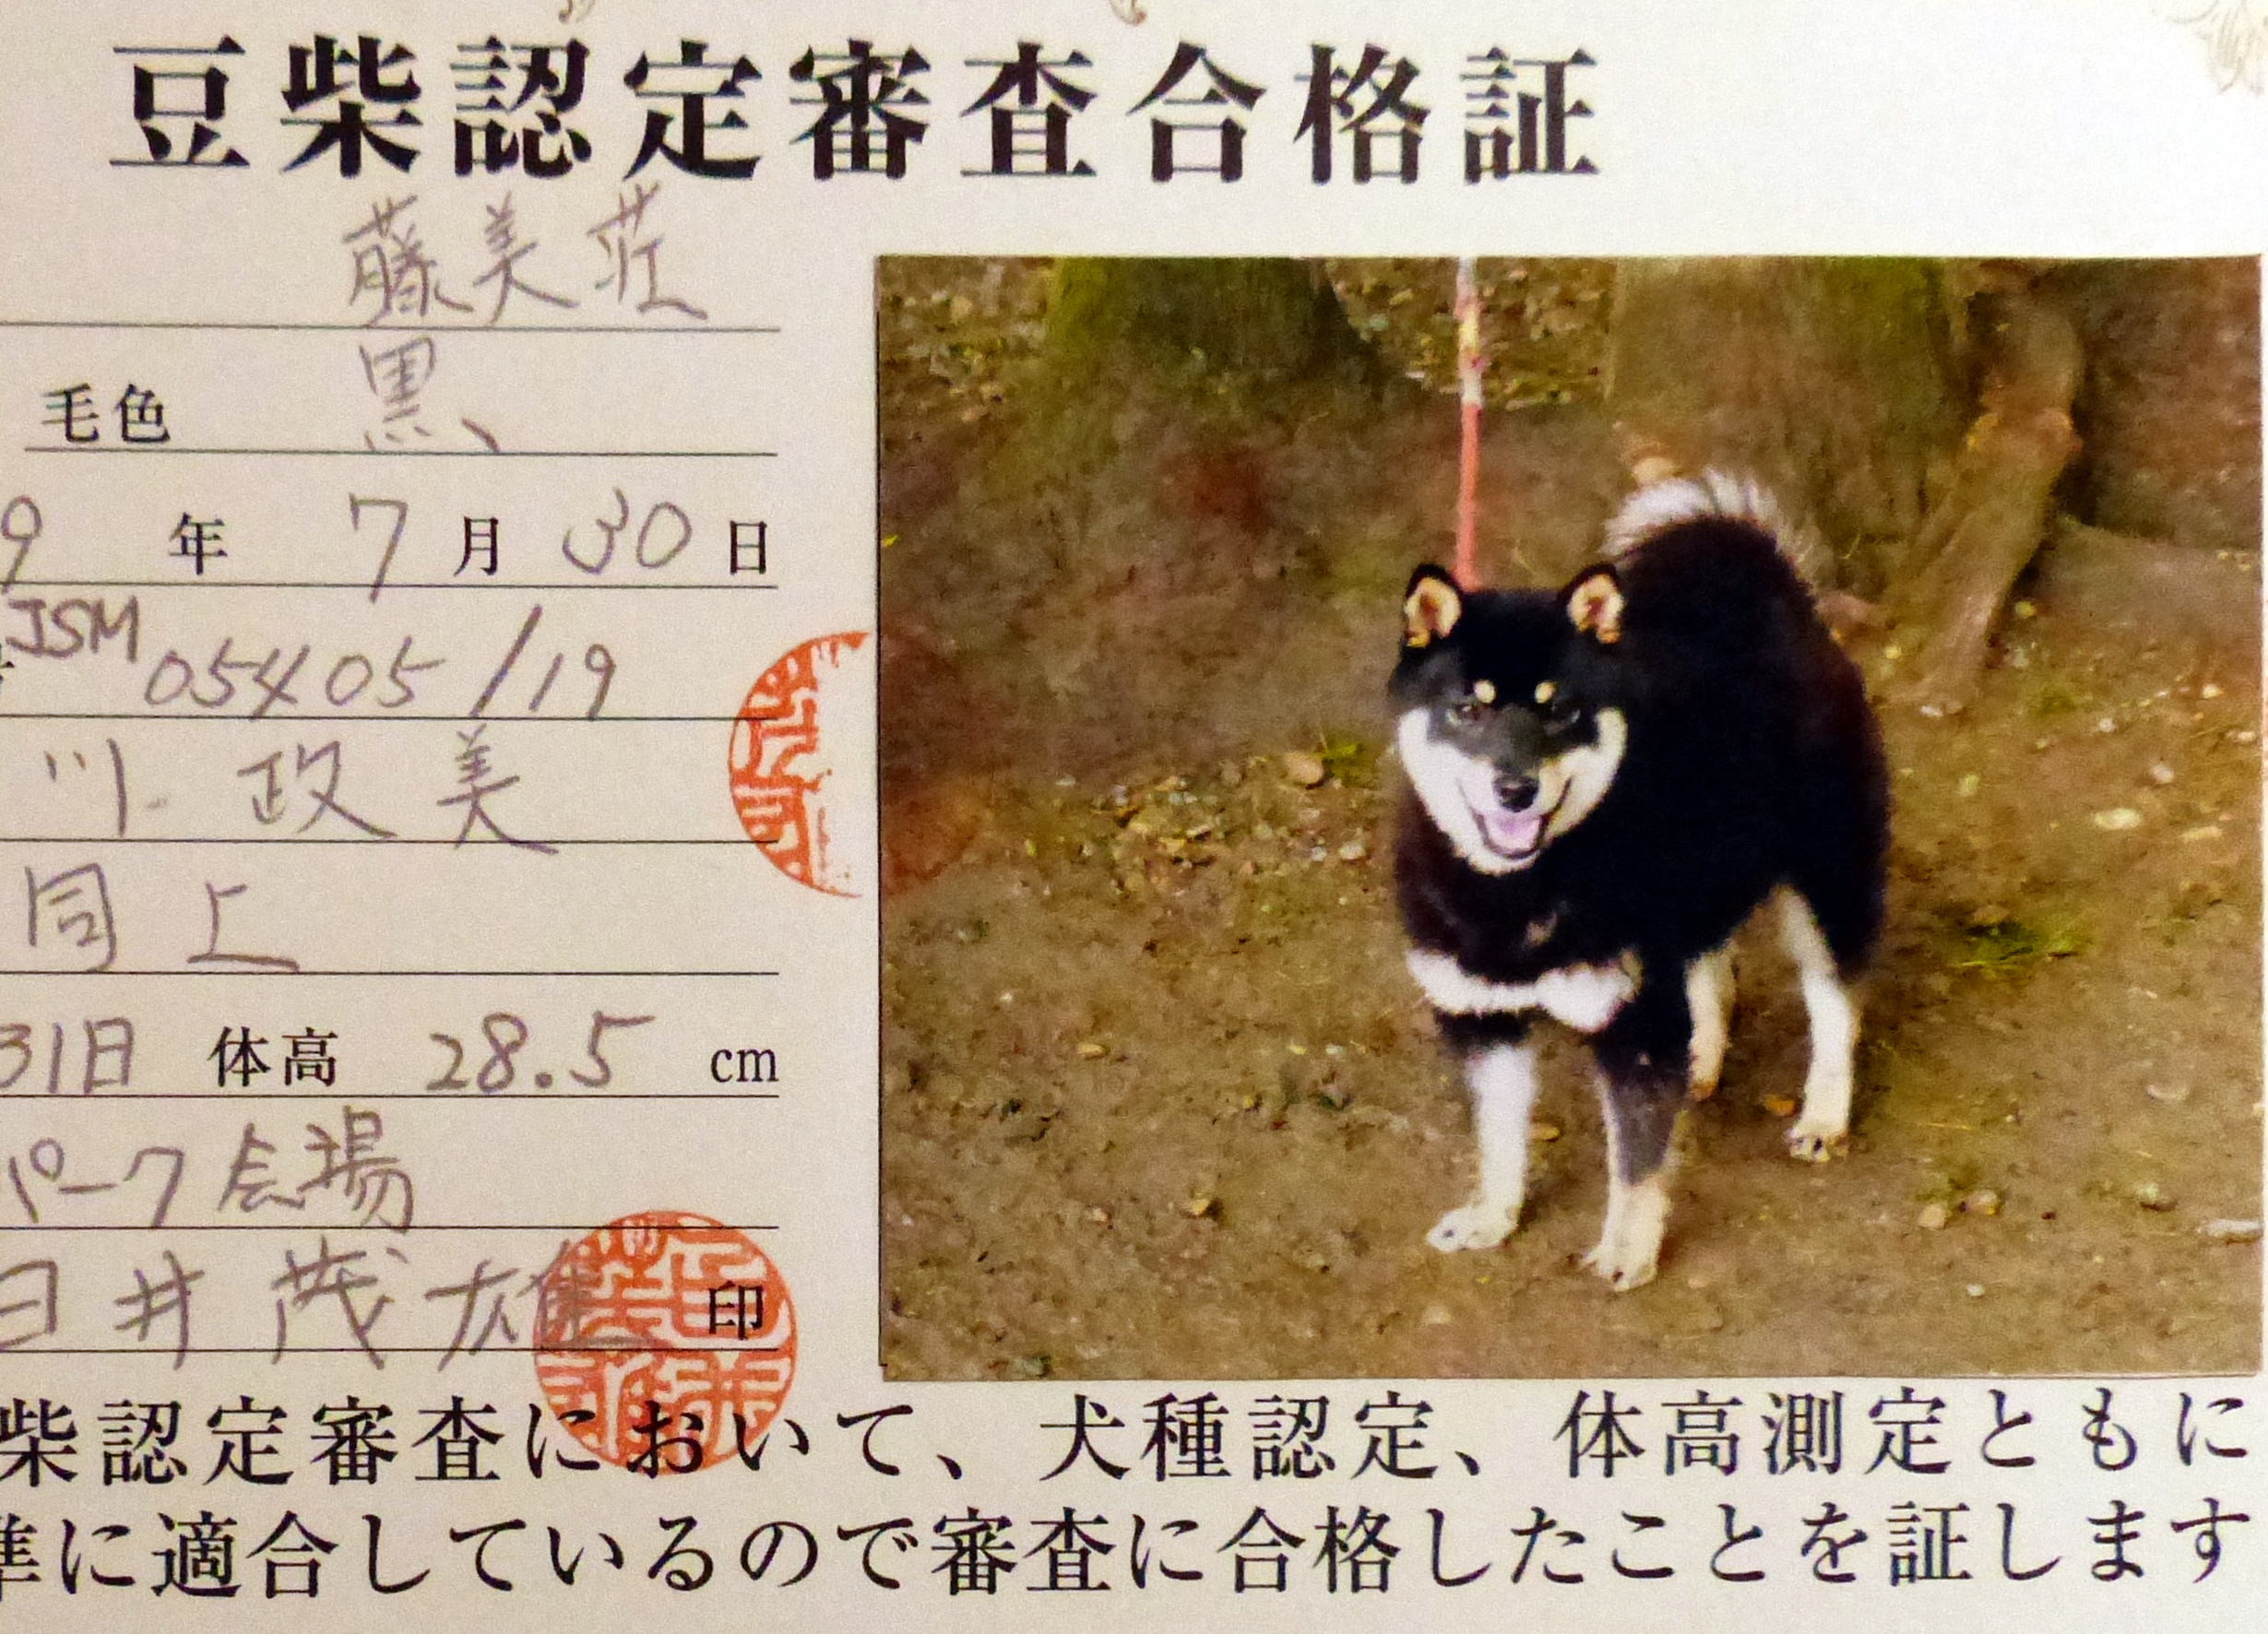 豆柴認定審査合格証
藤美荘
毛色 黒
9 年 7 月 30 日
JSM 05405/19
川 政美
同上
31日 体高 28.5 cm
パーク会場
臼井 茂雄 印
柴認定審査において、犬種認定、体高測定ともに
準に適合しているので審査に合格したことを証します